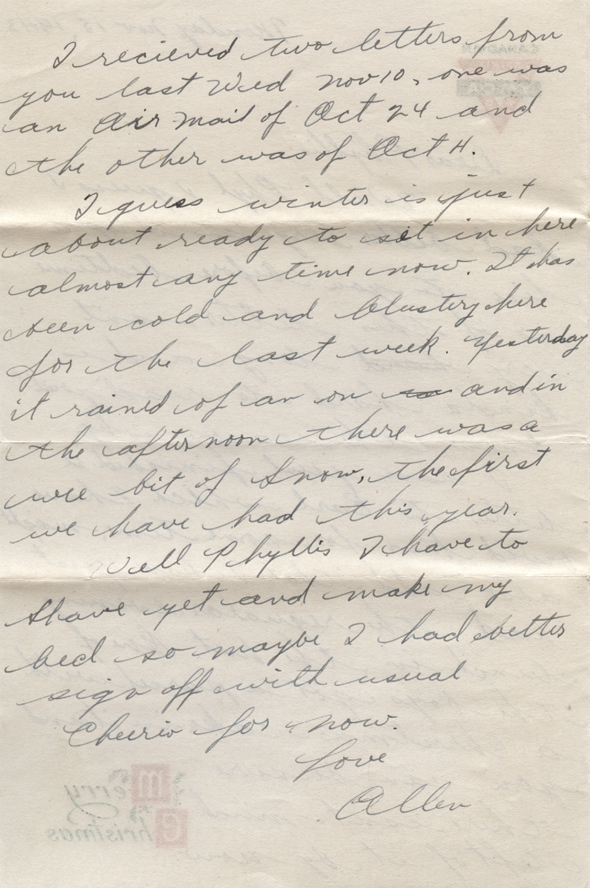 I recieved two letters from
you last Wed nov 10, one was
an Air mail of Oct 24 and
the other was of Oct 4.
I guess winter is just
about ready to set in here
almost any time now. It has
been cold and blustery here
for the last week. Yesterday
it rained of an on and in
the afternoon there was a
wee bit of snow, the first
we have had this year.
Well Phyllis I have to
shave yet and make my
bed so maybe I had better
sign off with usual
Cheerio for now.
Love
Allen
Merry
Christmas